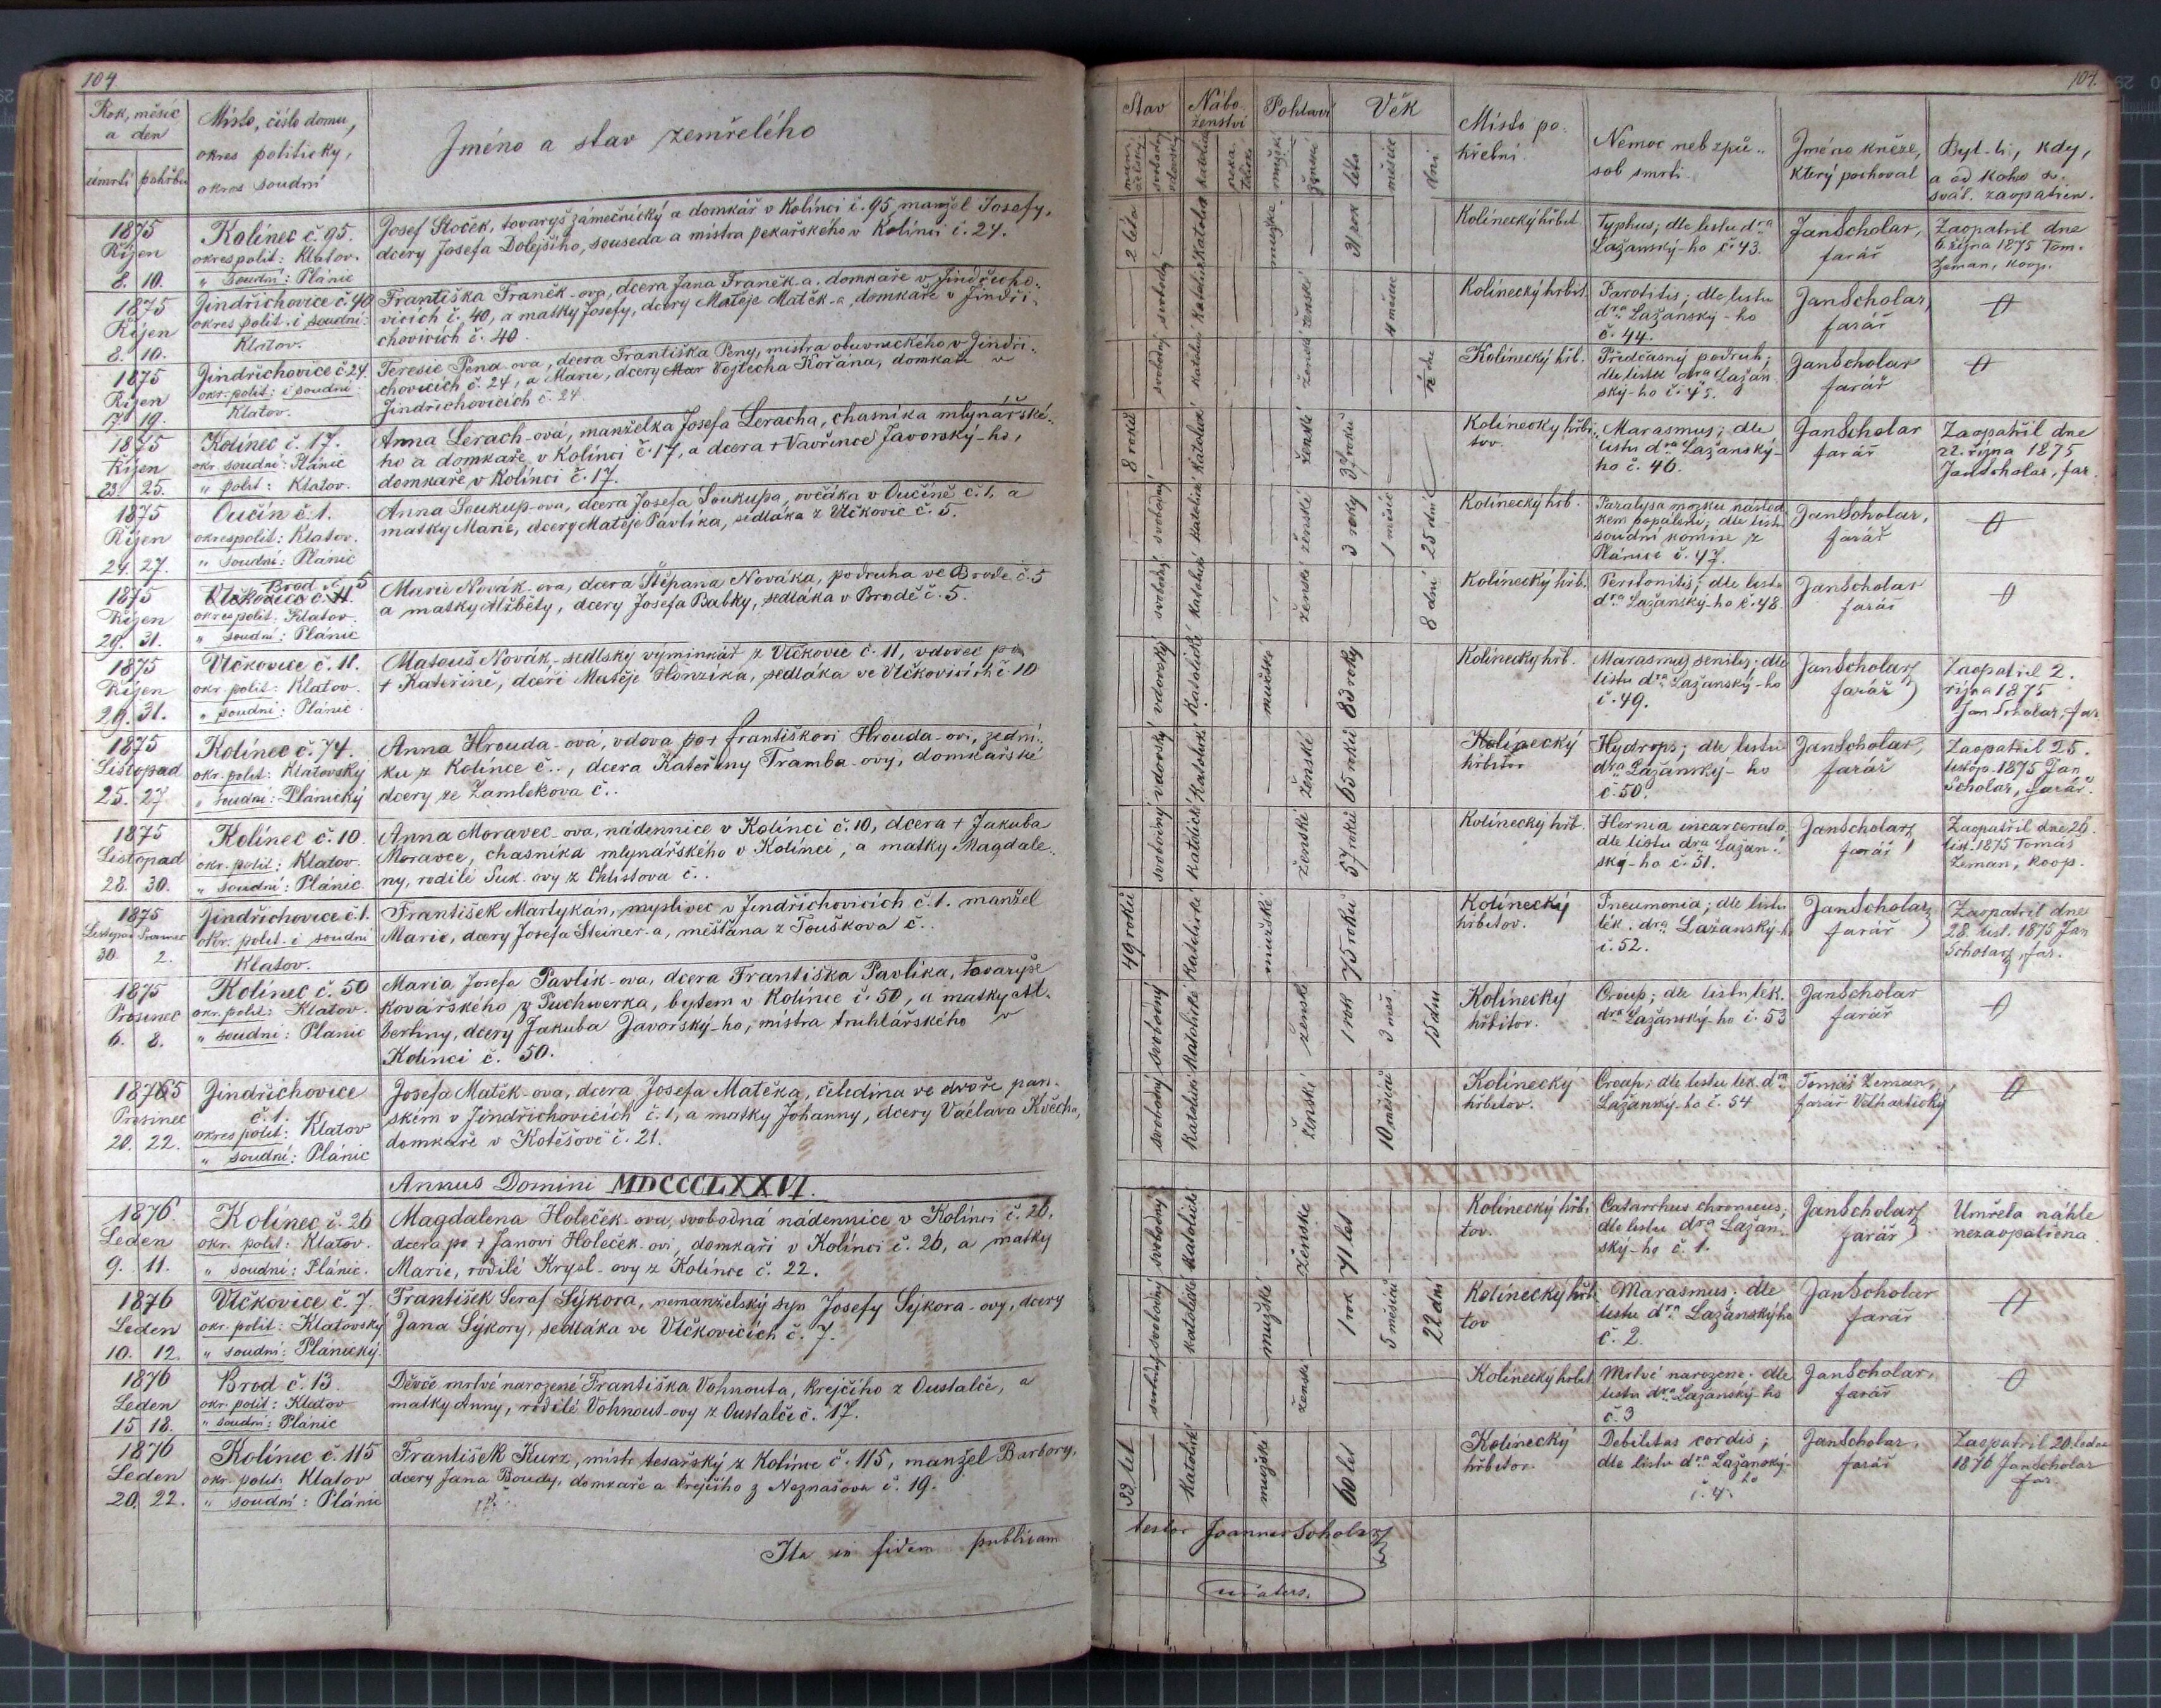 104.
Rok, měsíc
a den
úmrtí pohřbu
Místo, číslo domu,
okres politický,
okres soudní
Jméno a stav zemřelého
1875
Říjen
8. 10.
Kolínec č. 95.
okres polit: Klatov.
" soudní: Plánic
Josef Stoček, tovaryš zámečnický a domkář v Kolínci č. 95, manžel Josefy,
dcery Josefa Dolejšího, souseda a mistra pekařského v Kolínci č. 24.
1875
Říjen
8. 10.
Jindřichovice č. 40
okres polit. i soudní:
Klatov.
Františka Franěk-ova, dcera Jana Franěk-a, domkaře v Jindřicho-
vicích č. 40, a matky Josefy, dcery Matěje Matěk-a, domkaře v Jindři-
chovicích č. 40.
1875
Říjen
17. 19.
Jindřichovice č. 24.
okr. polit: i soudní
Klatov.
Teresie Pena-ova, dcera Františka Peny, mistra obuvnického v Jindři-
chovicích č. 24, a Marie, dcery Mar Vojtecha Kořána, domkaře v
Jindřichovicích č. 24
1875
Říjen
23. 25.
Kolínec č. 17.
okr. soudní: Plánic
" polit: Klatov.
Anna Lerach-ová, manželka Josefa Leracha, chasníka mlynářské-
ho a domkaře v Kolínci č. 17, a dcera + Vavřince Javorský-ho,
domkaře v Kolínci č. 17.
1875
Říjen
24. 27.
Oučín č. 1.
okres polit: Klatov.
" soudní: Plánic
Anna Soukup-ova, dcera Josefa Soukupa, ovčáka v Oučíně č. 1, a
matky Marie, dcery Matěje Pavlíka, sedláka z Vlčkovic č. 5.
1875
Říjen
29. 31.
Brod č. 5
Vlčkovice č. 11.
okres polit: Klatov.
" soudní: Plánic
Marie Novák-ova, dcera Štěpana Nováka, podruha ve Brodě č. 5
a matky Alžběty, dcery Josefa Babky, sedláka v Brodě č. 5.
1875
Říjen
29. 31.
Vlčkovice č. 11.
okr. polit: Klatov.
" soudní: Plánic
Matouš Novák, sedlský vyminkář z Vlčkovic č. 11, vdovec po
+ Kateřině, dceři Matěje Honzíka, sedláka ve Vlčkovicích č 10
1875
Listopad
25. 27
Kolínec č. 74.
okr. polit: Klatovský
" soudní: Plánický
Anna Hrouda-ová, vdova po + Františkovi Hrouda-ovi, zední-
ku z Kolínce č.., dcera Kateřiny Tramba-ovy, domkařské
dcery ze Zamlekova č..
1875
Listopad
28. 30.
Kolínec č. 10
okr. polit: Klatov.
" soudní: Plánic
Anna Moravec-ova, nádennice v Kolínci č. 10, dcera + Jakuba
Moravce, chasníka mlynářského v Kolínci, a matky Magdale-
ny, rodilé Suk-ovy z Chlistova č..
1875
Listopad Prosinec
30. 2.
Jindřichovice č 1.
okr. polit. i soudní
Klatov.
František Martykán, myslivec v Jindřichovicích č. 1. manžel
Marie, dcery Josefa Steiner-a, měšťana z Touškova č..
1875
Prosinec
6. 8.
Kolínec č. 50
okr. polit: Klatov.
" soudní: Plánic
Maria Josefa Pavlík-ova, dcera Františka Pavlíka, tovaryše
kovářského z Puchwerka, bytem v Kolínce č. 50, a matky Al-
bertiny, dcery Jakuba Javorský-ho, mistra truhlářského v
Kolínci č. 50.
1875
Prosinec
20. 22.
Jindřichovice
č. 1.
okres polit: Klatov
" soudní: Plánic
Josefa Matěk-ova, dcera Josefa Matěka, čeledína ve dvoře pan-
ském v Jindřichovicích č. 1, a matky Johanny, dcery Václava Květha,
domkaře v Kotěšově č. 21.
Annus Domini MDCCCLXXVI.
1876
Leden
9. 11.
Kolínec č. 26
okr. polit: Klatov.
" soudní: Plánic.
Magdalena Holeček-ova, svobodná nádennice v Kolínci č. 26,
dcera po + Janovi Holeček-ovi, domkaři v Kolínci č. 26, a matky
Marie, rodilé Krysl-ovy z Kolínce č. 22.
1876
Leden
10. 12.
Vlčkovice č. 7.
okr. polit: Klatovský
" soudní: Plánický.
František Seraf Sýkora, nemanželský syn Josefy Sýkora-ovy, dcery
Jana Sýkory, sedláka ve Vlčkovicích č. 7.
1876
Leden
15 18.
Brod č. 13.
okr. polit: Klatov
" soudní: Plánic
Děvče mrtvé narozené Františka Vohnouta, krejčího z Oustalče, a
matky Anny, rodilé Vohnout-ovy z Oustalče č. 17.
1876
Leden
20. 22.
Kolínec č. 115
okr. polit: Klatov
" soudní: Plánic
František Kurz, mistr tesařský z Kolínce č. 115, manžel Barbory,
dcery Jana Boudy, domkaře a krejčího z Neznašova č. 19.
Ita in fidem publicam
104.
Stav
Nábo-
ženství
Pohlaví
Věk
Místo po-
hřební
Nemoc neb způ-
sob smrti.
Jméno kněze,
který pochoval
Byl-li, kdy,
a od koho s.
svát. zaopatřen.
svobodný
vdovský
katolické
mužské
ženské
léta
měsíce
dni
2 léta
katolík
mužské
31 rok
Kolínecký hřbit.
Typhus; dle listu dra
Lažanský-ho č. 43.
Jan Scholar,
farář
Zaopatřil dne
6 října 1875 Tom.
Zeman, koop.
svobodný
katolík
ženské
4 měsíce
Kolínecký hřbit.
Parotitis; dle listu
dra Lažanský-ho
č. 44.
Jan Scholar,
farář
svobodný
ženské
Kolínecký hřb.
Předčasný podruh;
dle listu dra Lažan-
ský-ho č. 45.
Jan Scholar
farář
8 roků
katolické
ženské
37 roků
Kolínecký hřbi-
tov.
Marasmus; dle
listu dra Lažanský-
ho č. 46.
Jan Scholar
farář
Zaopatřil dne
22. října 1875
Jan Scholar, far.
svobodný
katolické
ženské
3 roky
1 měsíc
25 dní
Kolínecký hřb.
Paralysa mozku násled-
kem popálení; dle listu
soudní komise z
Plánice č. 47.
Jan Scholar,
farář
svobodný
katolické
ženské
8 dní
Kolínecký hřb.
Peritonitis; dle listu
dra Lažanský-ho č. 48.
Jan Scholar
farář
vdovský
katolické
mužské
83 roky
Kolínecký hřb.
Marasmus senilis; dle
listu dra Lažanský-ho
č. 49.
Jan Scholar
farář
Zaopatřil 2.
října 1875
Jan Scholar, far
vdovský
katolické
ženské
65 roků
Kolínecký
hřbitov
Hydrops; dle listu
dra Lažanský-ho
č. 50.
Jan Scholar,
farář
Zaopatřil 25.
listop. 1875 Jan
Scholar, farář.
svobodný
katolické
ženské
57 roků
Kolínecký hřb.
Hernia incarcerata,
dle listu dra Lažan-
ský-ho č. 51.
Jan Scholar
farář
Zaopatřil dne 26.
list. 1875 Tomáš
Zeman, koop.
49 roků
katolické
mužské
75 roků
Kolínecký
hřbitov.
Pneumonia; dle listu
lék. dra Lažanský-h
č. 52.
Jan Scholar
farář
Zaopatřil dne
28. list. 1875 Jan
Scholar, far.
svobodný
katolické
ženské
1 rok
3 měs.
15 dni
Kolínecký
hřbitov.
Croup; dle listu lék.
dra Lažanský-ho č. 53
Jan Scholar
farář
svobodný
katolické
ženské
10 měsíců
Kolínecký
hřbitov.
Croup; dle listu lék. dra
Lažanský-ho č. 54
Tomáš Zeman,
farář Velhartický
svobodný
katolické
ženské
71 let
Kolínecký hřbi-
tov.
Catarrhus chronicus;
dle listu dra Lažan-
ský-ho č. 1.
Jan Scholar
farář
Umřela náhle
nezaopatřena
svobodný
katolické
mužské
1 rok
5 měsíců
22 dní
Kolínecký hřbi-
tov
Marasmus; dle
listu dra Lažanskýho
č. 2.
Jan Scholar
farář
svobodný
ženské
Kolínecký hřbit.
Mrtvě narozené. dle
listu dra Lažanský-ho
č. 3
Jan Scholar,
farář
33 let
katolické
mužské
60 let
Kolínecký
hřbitov.
Debilitas cordis;
dle listu dra Lažanský-
ho
č. 4.
Jan Scholar,
farář
Zaopatřil 20. ledna
1876 Jan Scholar
far.
testor Joannes Scholar